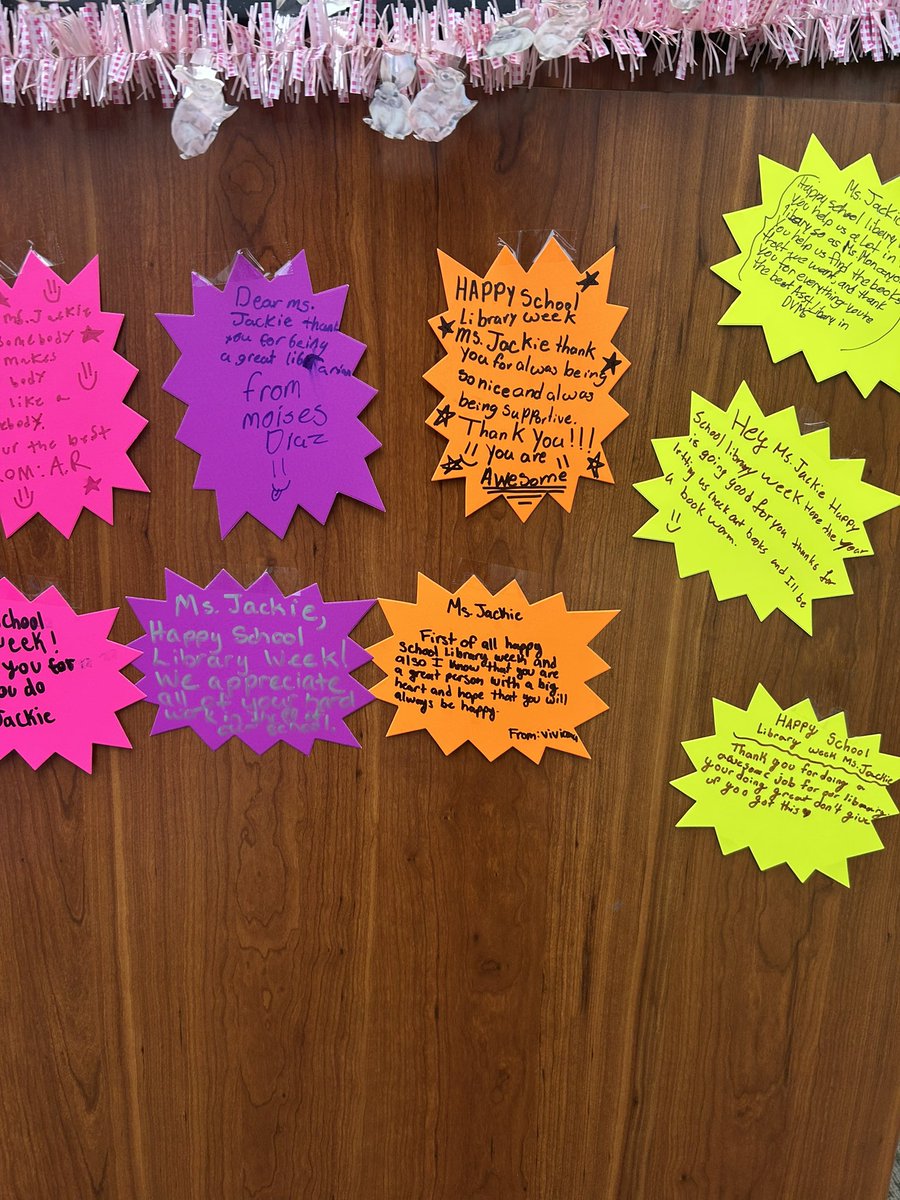 ms. Jackie
somebody
makes
body
like a
ebody.
our the best
om: A.R
Dear ms.
Jackie thank
you for being
a great librarian
from
moises
Diaz
HAPPY School
Library week
Ms. Jackie thank
you for always being
so nice and always
being supportive.
Thank You!!!
you are
Awesome
Ms. Jackie
Happy school library
you help us a lot in
library so as Ms.
You help us find the books
that we want, and thank
you for everything you're
the best Asst library in
DVMS
Hey Ms. Jackie Happy
School library week Hope the year
is going good for you thanks for
letting us check out books and I'll be
a book worm.
chool
eek!
you for
ou do
Jackie
Ms. Jackie,
Happy School
Library Week!
We appreciate
all of your hard
work in
our school.
Ms. Jackie
First of all happy
school library week and
also I know that you are
a great person with a big
heart and hope that you will
always be happy.
From: viviana
HAPPY School
Library week Ms. Jackie
Thank you for doing a
awesome job for our library.
your doing great don't give
up you got this